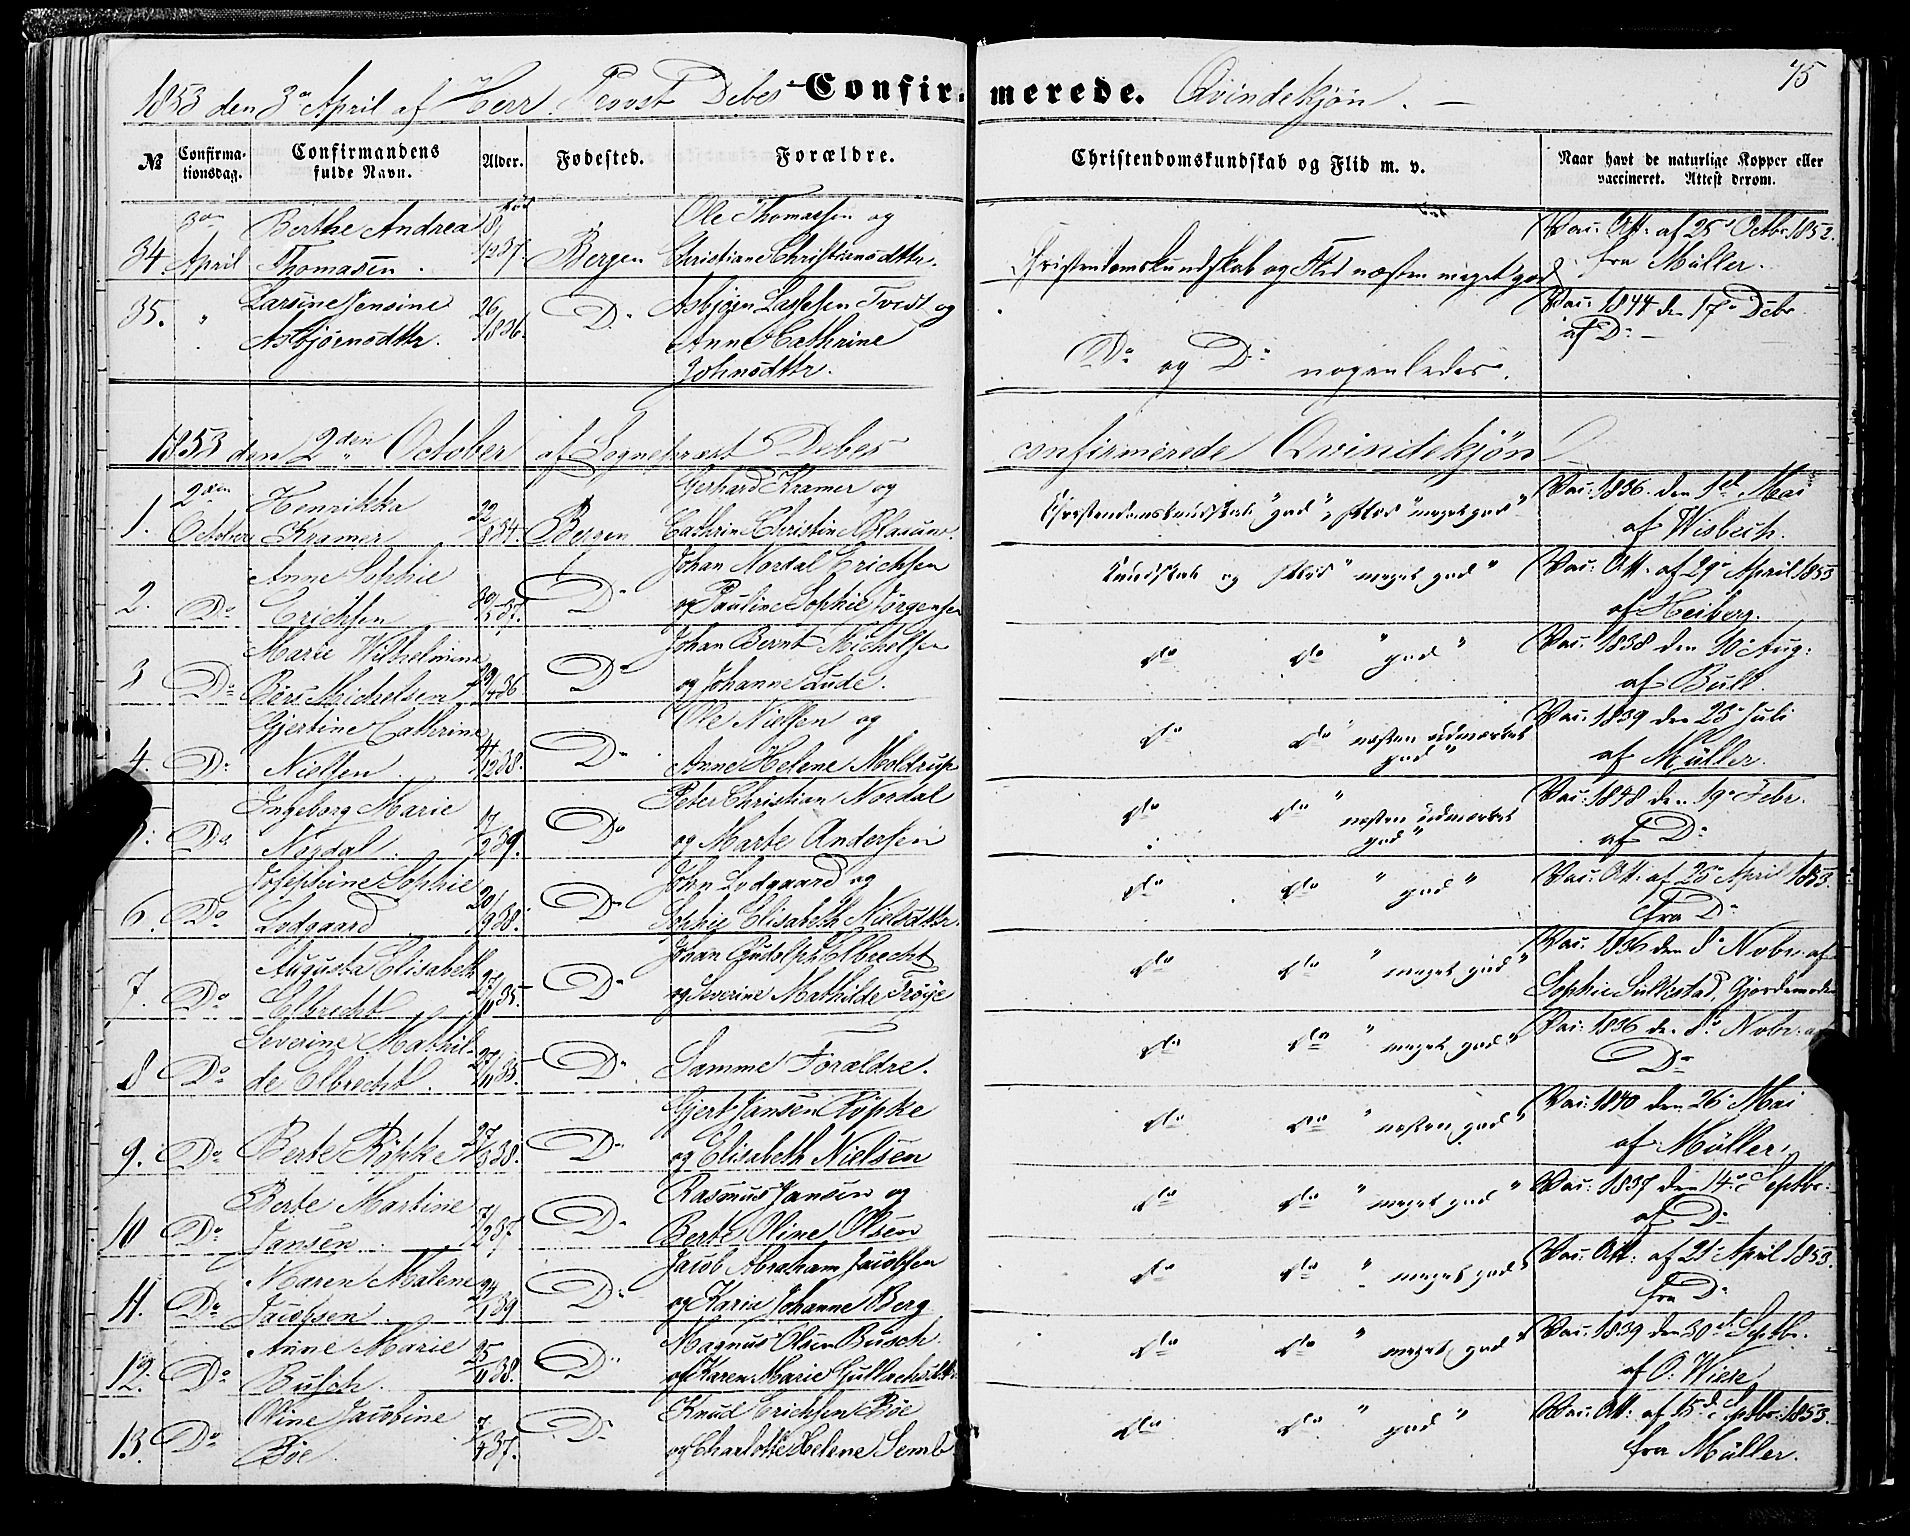 1853 den 3die April af Herr Provst Debes Confirmerede. Qvindekjøn. 75
№ Confirmationsdag. Confirmandens fulde Navn. Alder. Fødested. Forældre. Christendomskundskab og Flid m. v. Naar havt de naturlige Kopper eller vaccineret. Attest derom.
34 April Berthe Andrea Thomasen. 8/12 37. Bergen Ole Thomassen og Christiane Christiansdttr. Christendomskundskab og Flid næsten meget god Vac: Att: af 25 Octbr 1852. fra Müller.
35. " Larsine Jensine Asbjørnsdttr. 26/ 1836. Do Asbjørn Lassesen Tvedt og Anne Cathrine Johnsdttr. Do og Do nogenledes. Vac: 1844 den 17de Debr af Do
1853 den 2den October af Sogneprest Debes confirmerede Qvindekjøn
1. 2den October Henrikka Kramer 22/ 34. Bergen Gerhard Kramer og Cathrine Christine Christendomskundskab "god", Flid "meget god" Vac: 1836 den Mai af Wisbech.
2. Do Anne Sophie Erichsen 30/5 37. Do Johan Nordal Erichsen og Pauline Sophie Jørgensen Kundskab og Flid "meget god" Vac: Att: af 29 April 1853 af Heiberg.
3 Do Marie Wilhelmine Michelsen 29/4 36. Do Johan Bernt Michelsen og Johanne Lude. do do "god" Vac: 1838 den 10 Aug: af Bull.
4. Do Gjertine Cathrine Nielsen 4/12 38. Do Ole Nielsen og Anne Helene Moldrup do do "næsten udmærket god" Vac: 1839 den 23 Juli af Müller.
5. Do Ingeborg Marie Nordal. 17/2 39. Do Peter Christian Nordal og Marte Andersen do do "næsten udmærket god" Vac: 1848 den 19 Febr. af Do
6. Do Josephine Sophie Lodgaard 20/9 38. Do John Lodgaard og Sophie Elisabeth Nielsdttr. do do "god" Vac: Att: af 25 April 1853. fra Do
7. Do Augusta Elisabeth Elbrecht 27/11 35. Do Johan Elbrecht og Severine Mathilde Trøye do do "meget god" Vac: 1836 den 8 Nobr. af Sophie Sulkstad, Gjordemoder
8 Do Severine Mathilde Elbrecht. 27/11 35. Do Samme Forældre. do do "meget god" Vac: 1836 den 8 Nobr. af Do
9. Do Berte Røpke 27/3 38. Do Gjert Jansen Røpke og Elisabeth Nielsen do do "næsten god" Vac: 1840 den 26 Mai af Müller.
10 Do Berte Martine Jansen 7/2 37 Do Rasmus Jansen og Berte Oline Olsen do do "meget god" Vac: 1837 den 14de Septbr. af Do
11. Do Maren Malene Jacobsen 24/1 39 Do Jacob Abraham Jacobsen og Karen Johanne Berg do do "meget god" Vac: Att: af 21 April 1853. fra Do
12. Do Anne Marie Busch. 25/11 38. Do Magnus Olsen Busch. og Karen Marie do do "meget god" Vac: 1839 den 30 Septbr. af O: Wiese
13. Do Oline Jacobine Bøe 7/4 37. Do Knud Erichsen Bøe og Charlotte Helene Semb do do "god" Vac: Att: af 15de Septbr. 1853. fra Müller.